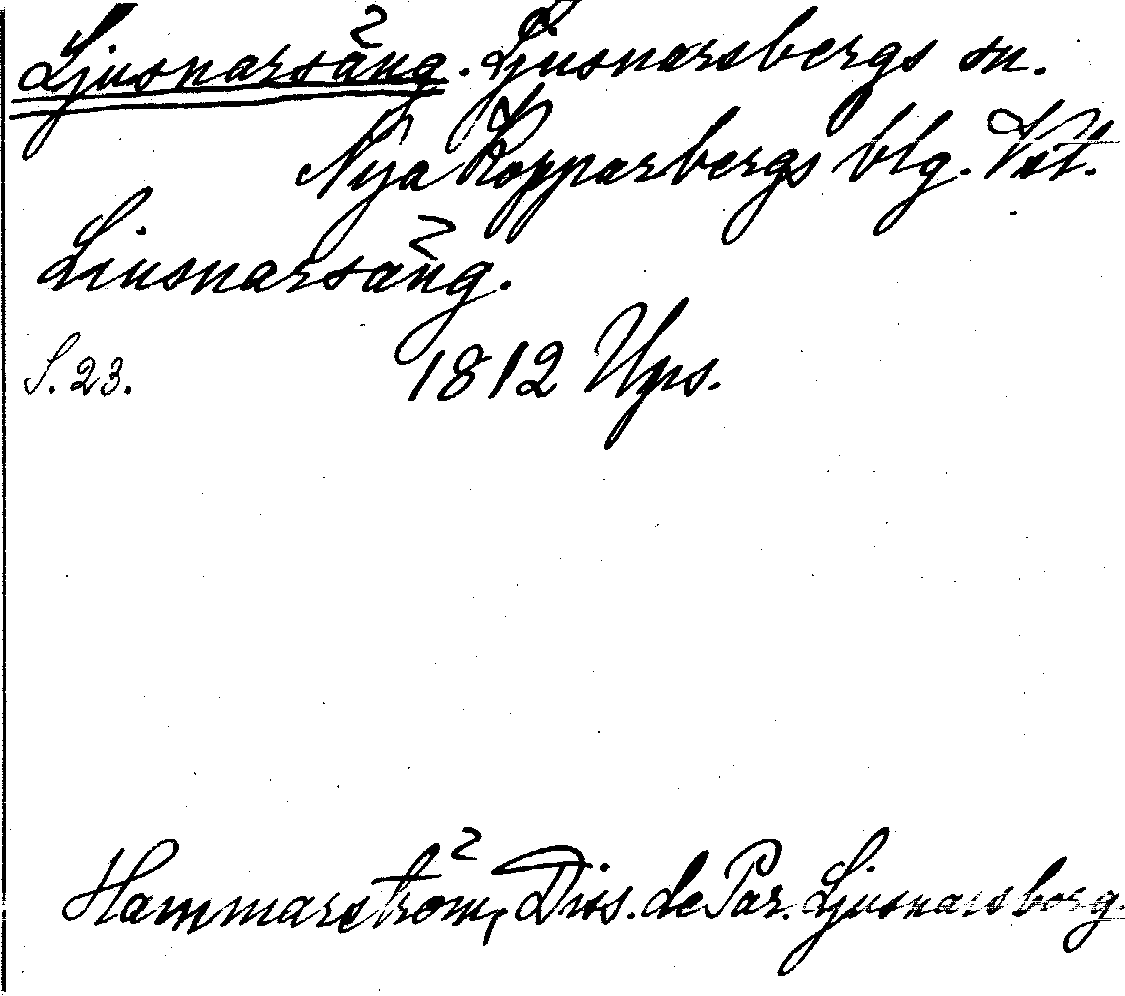 Ljusnarsäng. Ljusnarsbergs sn.
Nya Kopparbergs blg. Vstl.
Liusnarsäng.
S. 23. 1812 Ups.
Hammarström, Diss. de Par. Ljusnarsberg.